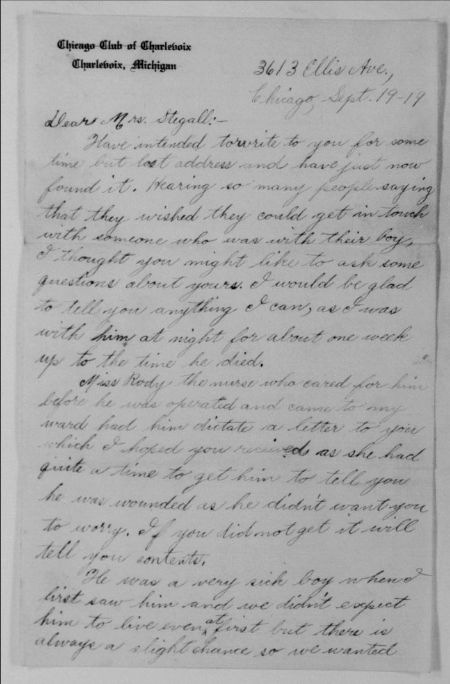 Chicago Club of Charlevoix
Charlevoix, Michigan
3613 Ellis Ave.,
Chicago, Sept. 19-19
Dear Mrs. Stegall:-
Have intended to write to you for some
time but lost address and have just now
found it. Hearing so many people saying
that they wished they could get in touch
with someone who was with their boy,
I thought you might like to ask some
questions about yours. I would be glad
to tell you anything I can, as I was
with him at night for about one week
up to the time he died.
Miss Rody the nurse who cared for him
before he was operated and came to my
ward had him dictate a letter to you
which I hoped you received as she had
quite a time to get him to tell you
he was wounded as he didn't want you
to worry. If you did not get it will
tell you contents.
He was a very sick boy when I
first saw him and we didn't expect
him to live even at first but there is
always a slight chance so we wanted